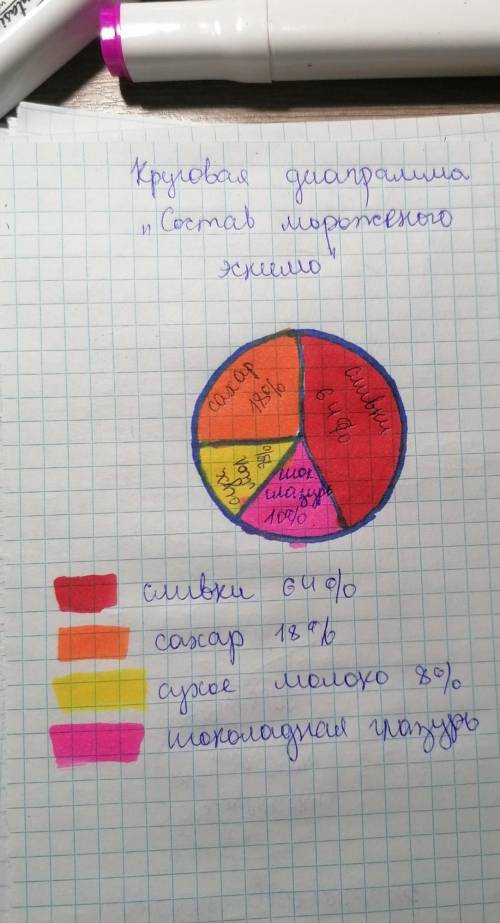 Круговая диаграмма
„Состав мороженого
эскимо"
сахар
18%
сливки
64%
сух
мол
8%
шок
глазурь
10%
сливки 64%
сахар 18%
сухое молоко 8%
шоколадная глазурь